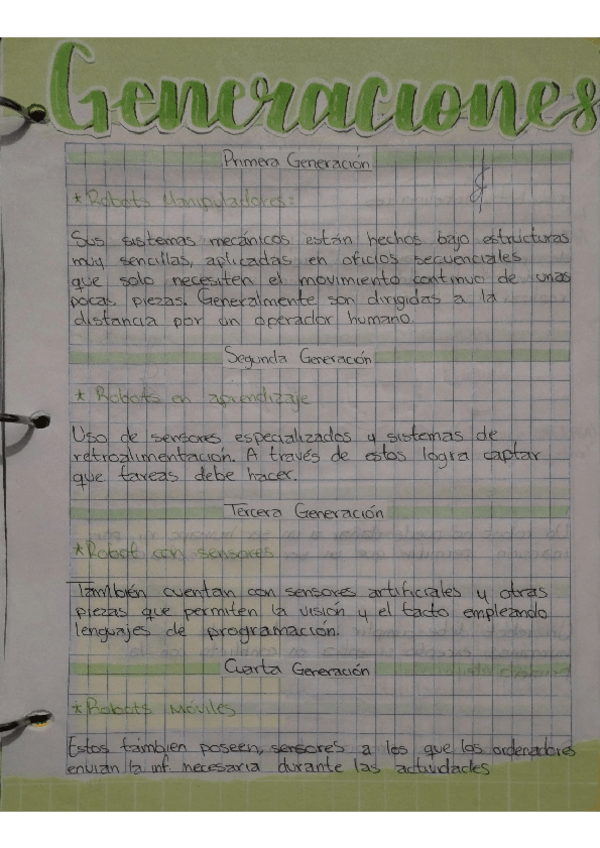 Generaciones
Primera Generación
* Robots Manipuladores:
Sus sistemas mecánicos están hechos bajo estructuras
muy sencillas, aplicadas en oficios secuenciales
que solo necesiten el movimiento continuo de unas
pocas piezas. Generalmente son dirigidas a la
distancia por un operador humano.
Segunda Generación
* Robots en aprendizaje
Uso de sensores especializados y sistemas de
retroalimentación. A través de estos logra captar
que tareas debe hacer.
Tercera Generación
* Robot con sensores
También cuentan con sensores artificiales y otras
piezas que permiten la visión y el tacto emplezando
lenguajes de programación.
Cuarta Generación
* Robots Móviles
Estos tambien poseen, sensores a los que los ordenadores
envian la inf. necesaria durante las actividades